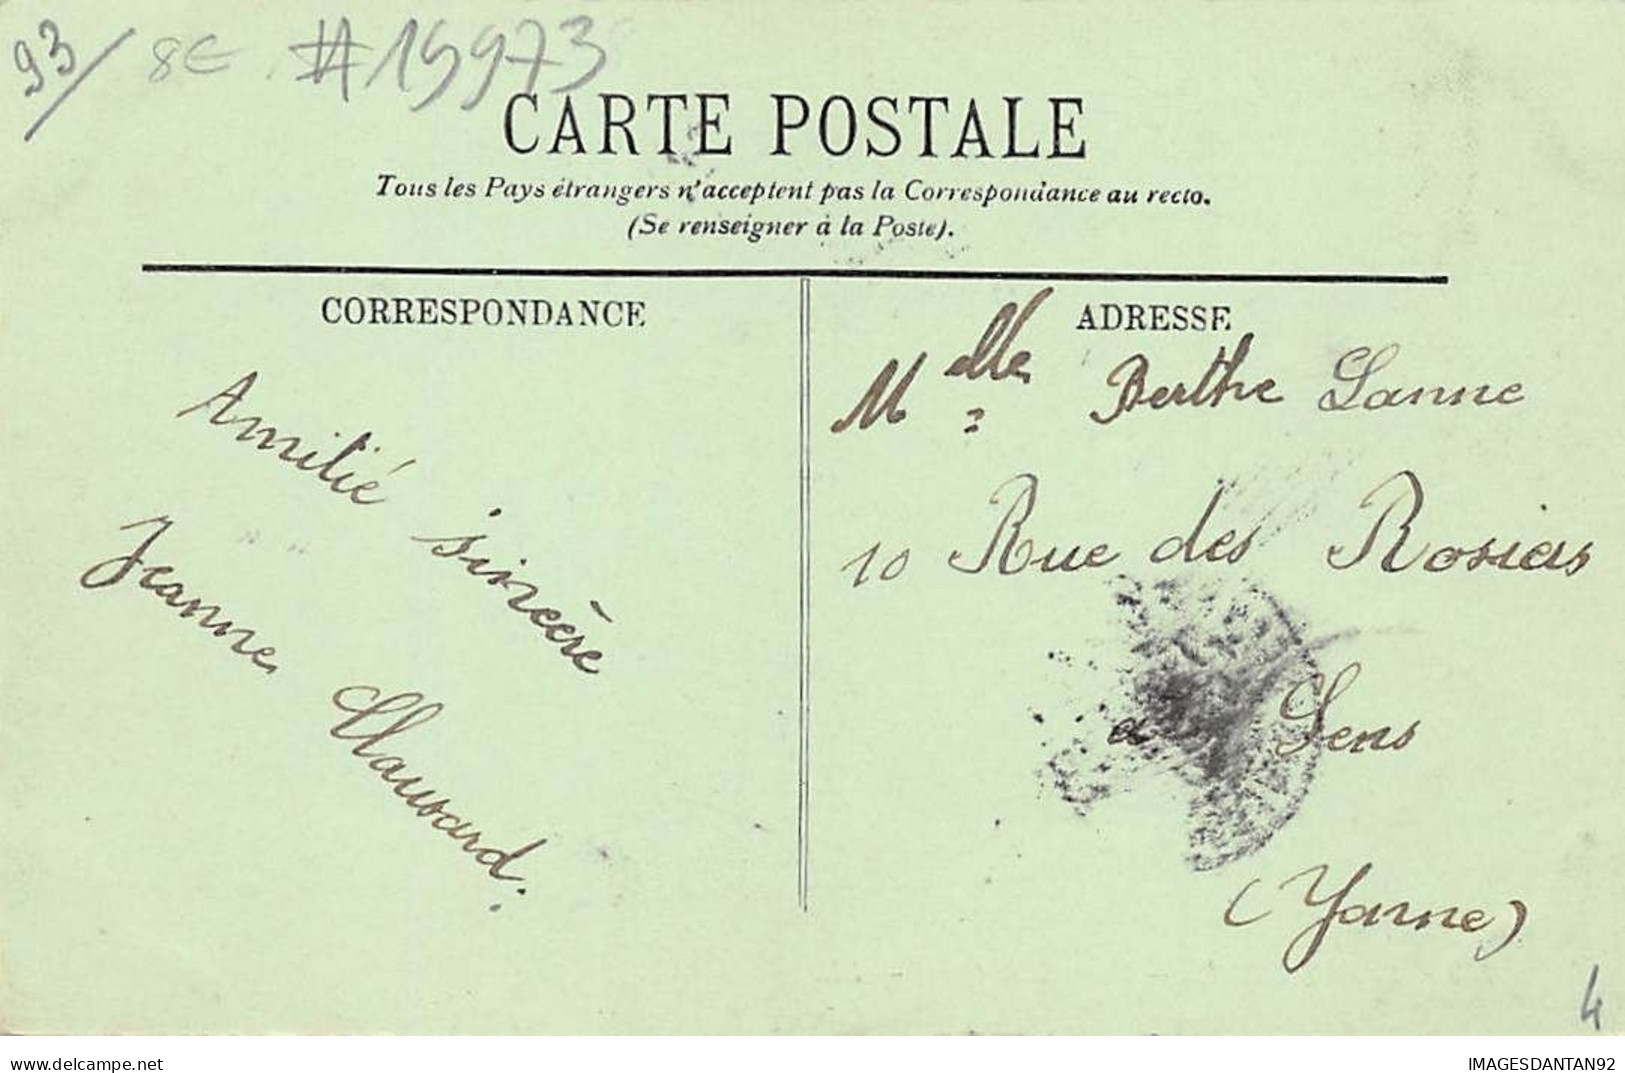 93/ 8€ #15973
CARTE POSTALE
Tous les Pays étrangers n'acceptent pas la Correspondance au recto.
(Se renseigner à la Poste).
CORRESPONDANCE
Amitié sincère
Jeanne
ADRESSE
Melle Berthe Lanne
10 Rue des Rosiers
à Sens
(Yonne)
4
delcampe.net
IMAGESDANTAN92